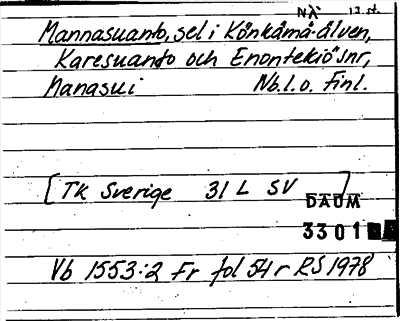 NÄ 13 st.
Mannasuanto, sel i Könkämä-älven,
Karesuando och Enontekiö snr,
Manasui Nb.l.o. Finl.
[TK Sverige 31 L SV]
DAUM
3301
Vb 1553:2 Fr fol 54 r RS 1978